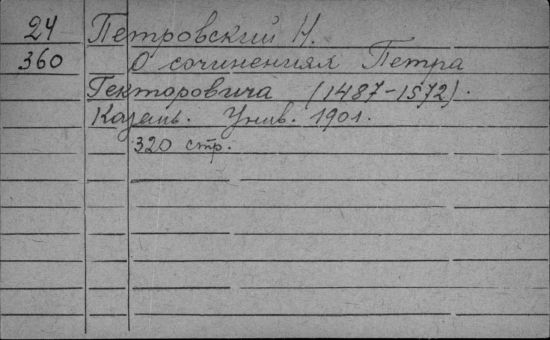 24 Петровский Н.
360 О сочинениях Петра
Гекторовича (1487-1572).
Казань. Унив. 1901.
320 стр.